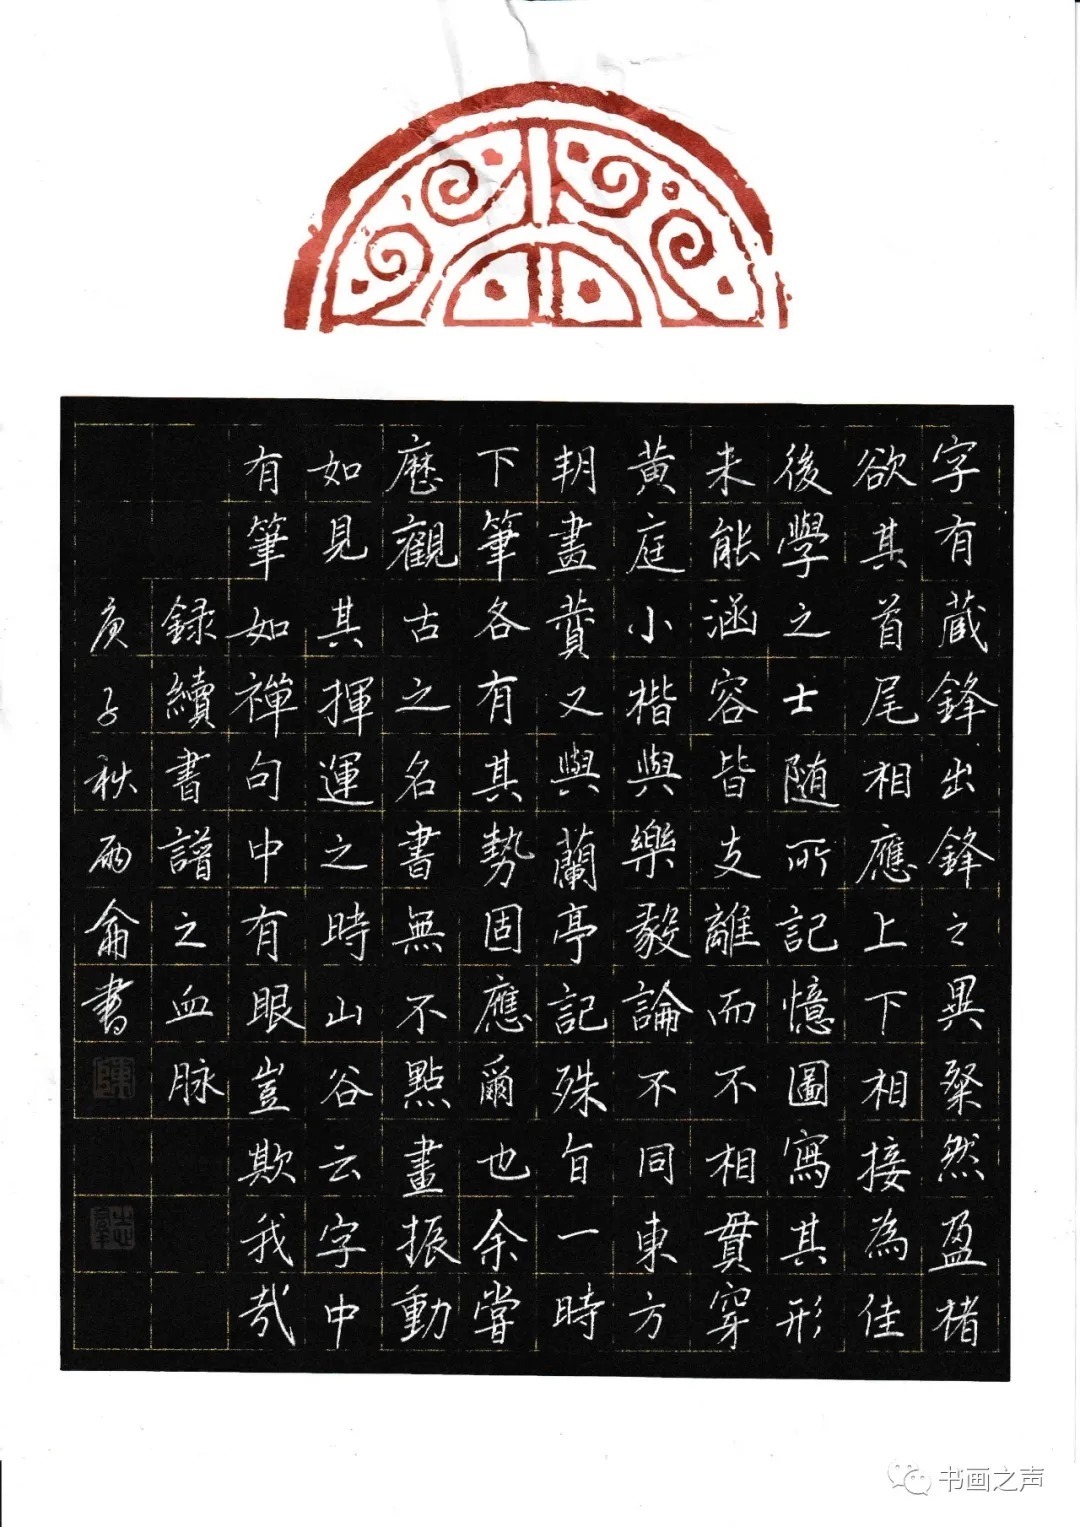 字有蔵鋒出鋒之異粲然盈楮
欲其首尾相應上下相接為佳
後學之士随所記憶圖寫其形
未能涵容皆支離而不相貫穿
黄庭小楷與樂毅論不同東方
朔畫賛又與蘭亭記殊旨一時
下筆各有其勢固應爾也余嘗
歷觀古之名書無不點畫振動
如見其揮運之時山谷云字中
有筆如禪句中有眼豈欺我哉
録續書譜之血脉
庚子秋雨侖書
书画之声